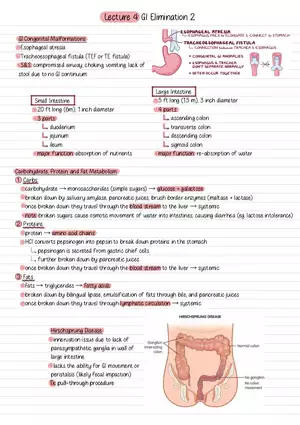 Lecture 4: GI Elimination 2
GI Congenital Malformations
Esophageal atresia
Tracheoesophageal fistula (TEF or TE fistula)
S&S: compromised airway, choking, vomiting, lack of
stool due to no GI continuum
ESOPHAGEAL ATRESIA
TRACHEOESOPHAGEAL FISTULA
CONNECTION between TRACHEA & ESOPHAGUS
CONGENITAL GI ANOMALIES
ESOPHAGUS & TRACHEA
DON'T SEPARATE NORMALLY
OFTEN OCCUR TOGETHER
Small Intestine
20 ft long (6m), 1 inch diameter
3 parts
duodenum
jejunum
ileum
major function: absorption of nutrients
Large Intestine
5 ft long (1.5 m), 3 inch diameter
4 parts
ascending colon
transverse colon
descending colon
sigmoid colon
major function: re-absorption of water
Carbohydrate, Protein and Fat Metabolism
1 Carbs:
carbohydrate → monosaccharides (simple sugars) → glucose + galactose
broken down by salivary amylase, pancreatic juices, brush border enzymes (maltase + lactase)
once broken down they travel through the blood stream to the liver → systemic
note: broken sugars cause osmotic movement of water into intestines, causing diarrhea (e.g. lactose intolerance)
2 Proteins:
protein → amino acid chains
HCl converts pepsinogen into pepsin to break down proteins in the stomach
pepsinogen is secreted from gastric chief cells
further broken down by pancreatic juices
once broken down they travel through the blood stream to the liver → systemic
3 Fats:
fats → triglycerides → fatty acids
broken down by lingual lipase, emulsification of fats through bile, and pancreatic juices
once broken down they travel through lymphatic circulation → systemic
Hirschsprung Disease
innervation issue due to lack of
parasympathetic ganglia in wall of
large intestine
lacks the ability for GI movement or
peristalsis (likely fecal impaction)
Tx: pull-through procedure
HIRSCHSPRUNG DISEASE
Ganglion
innervating
colon
Normal colon
No ganglion
No colon
movement